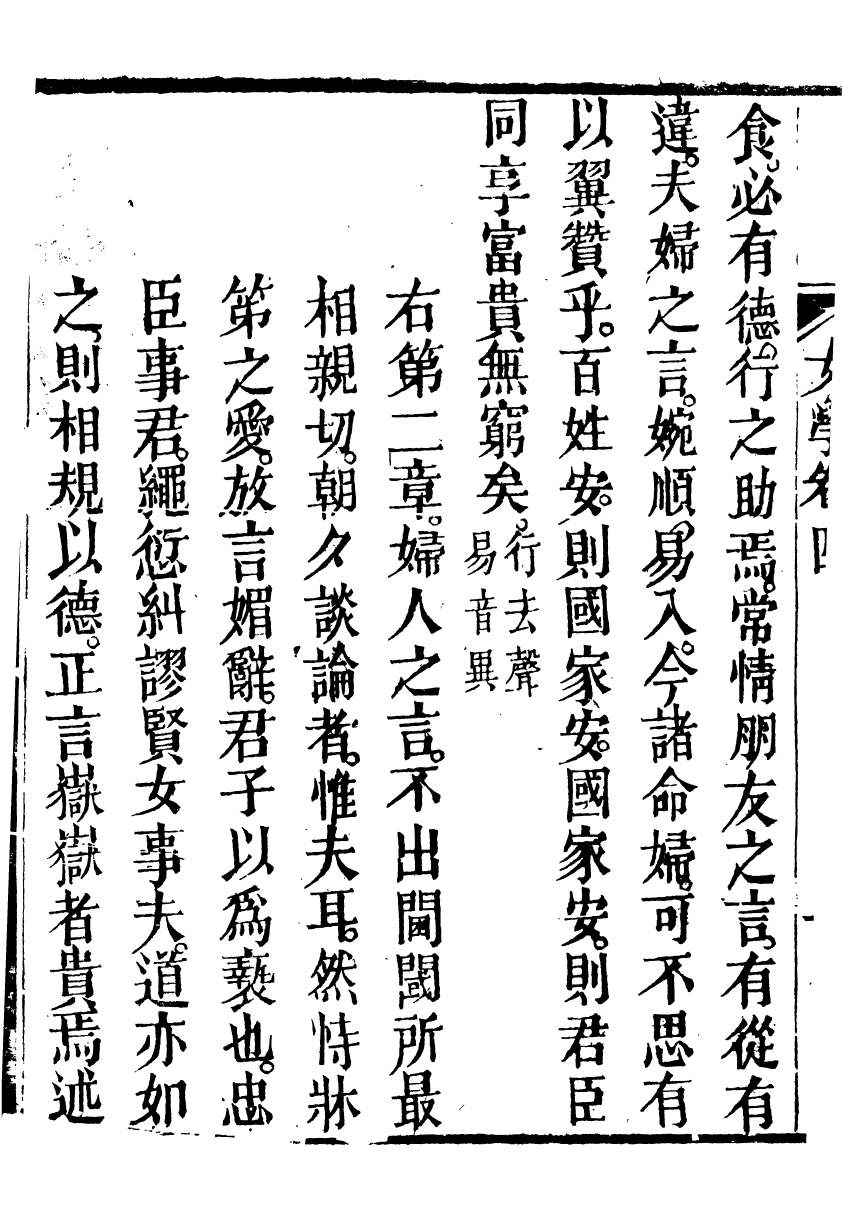 食。必有德。行之助焉。常情朋友之言。有從有
違。夫婦之言。婉順。易入。今諸命婦。可不思有
以翼贊乎。百姓安。則國家安。國家安。則君臣
同享富貴無窮矣。行去聲
易音異
右第二章。婦人之言。不出閫閾所最
相親切。朝夕談論者。惟夫耳。然恃牀
笫之愛。放言媚辭。君子以為褻也。忠
臣事君。繩愆糾謬賢女事夫。道亦如
之。則相規以德。正言嶽嶽者貴焉述